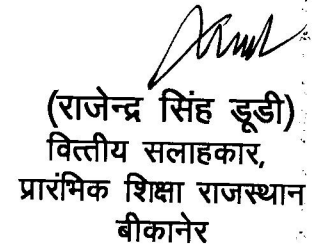 (राजेन्द्र सिंह डूडी)
वित्तीय सलाहकार,
प्रारंमिक शिक्षा राजस्थान
बीकानेर